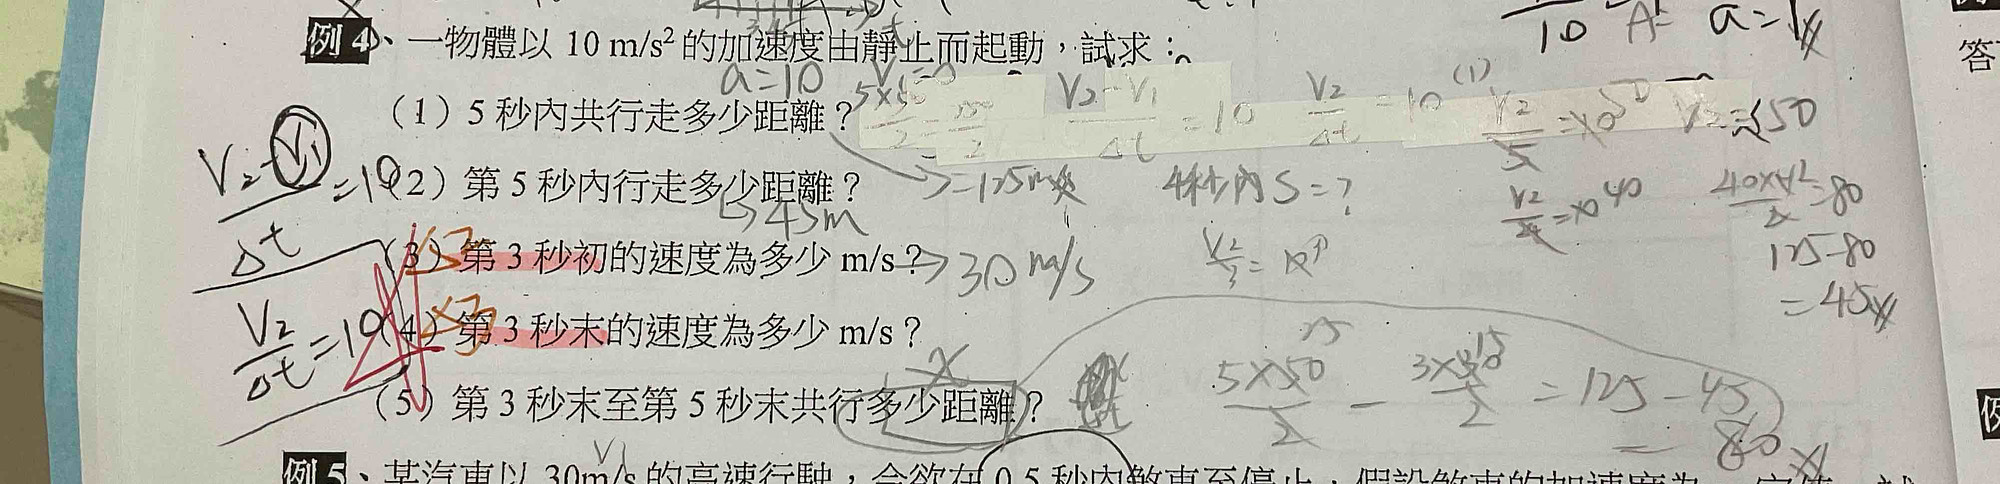 10 A' a=1
例 4、一物體以 10 m/s² 的加速度由靜止而起動，試求：
a=10 V₁=0
(1) 5 秒內共行走多少距離？
V₂-V₁/Δt =10 V₂/Δt =10 (1) V₂/5 =10 50 V₂=50
V₂-V₁/Δt =10
(2) 第 5 秒內行走多少距離？ =125m 4秒內 S=? V₂/4 =10 40 40×4/2 =80
45m
125-80
=45
(3) 第 3 秒初的速度為多少 m/s？ 30 m/s V₂/3 =10
V₂/Δt =10
(4) 第 3 秒末的速度為多少 m/s？
(5) 第 3 秒末至第 5 秒末共行多少距離？ 5×50/2 - 3×30/2 =125-45
=80
V₁
例 5、某汽車以 30m/s 的高速行駛，今欲在 0.5 秒內煞車至停止，假設煞車的加速度為一定值，試
答